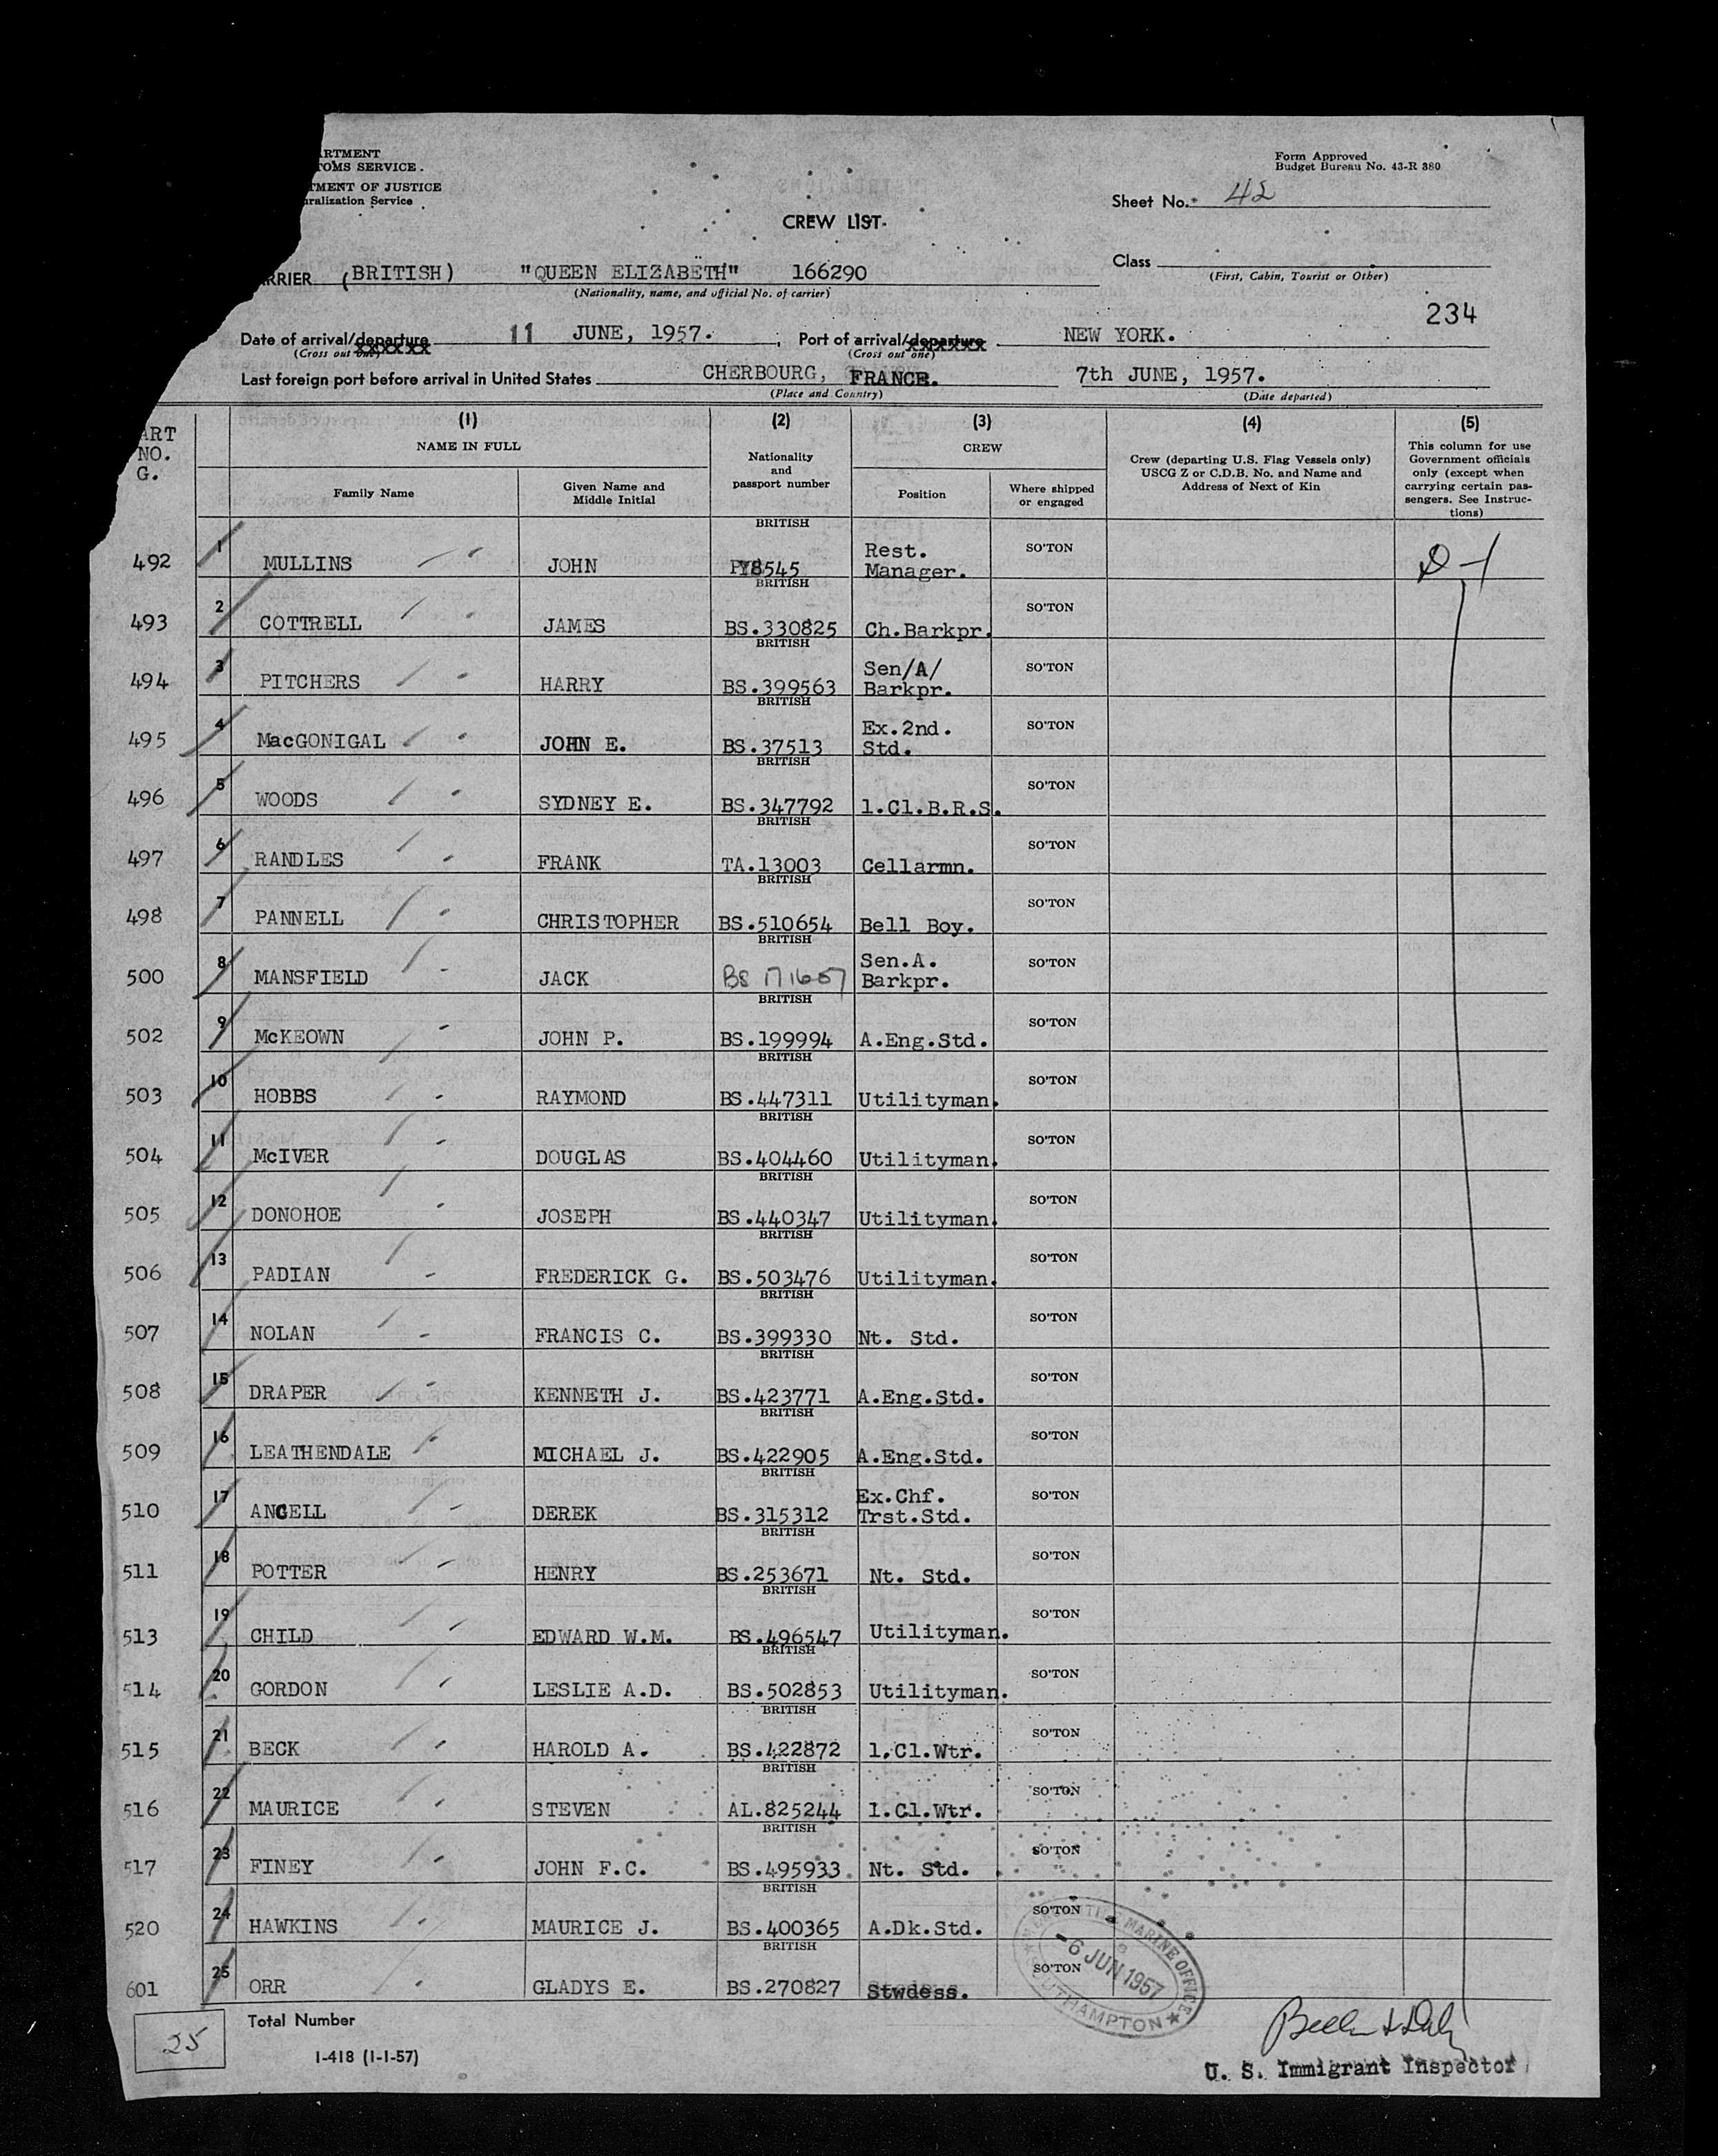 RTMENT
TOMS SERVICE.
TMENT OF JUSTICE
uralization Service
Form Approved
Budget Bureau No. 43-R 380
Sheet No. 42
CREW LIST
RRIER (BRITISH) "QUEEN ELIZABETH" 166290
(Nationality, name, and official No. of carrier)
Class
(First, Cabin, Tourist or Other)
234
Date of arrival/departure 11 JUNE, 1957. Port of arrival/departure NEW YORK.
(Cross out one) (Cross out one)
Last foreign port before arrival in United States CHERBOURG, FRANCE. 7th JUNE, 1957.
(Place and Country) (Date departed)
ART
NO.
G.
(1) (2) (3) (4) (5)
NAME IN FULL
Family Name
Given Name and
Middle Initial
Nationality
and
passport number
CREW
Position
Where shipped
or engaged
Crew (departing U.S. Flag Vessels only)
USCG Z or C.D.B. No. and Name and
Address of Next of Kin
This column for use
Government officials
only (except when
carrying certain pas-
sengers. See Instruc-
tions)
492 1 MULLINS JOHN BRITISH PY8545 Rest. Manager. SO'TON D-1
493 2 COTTRELL JAMES BRITISH BS.330825 Ch.Barkpr. SO'TON
494 3 PITCHERS HARRY BRITISH BS.399563 Sen/A/ Barkpr. SO'TON
495 4 MacGONIGAL JOHN E. BRITISH BS.37513 Ex.2nd. Std. SO'TON
496 5 WOODS SYDNEY E. BRITISH BS.347792 1.Cl.B.R.S. SO'TON
497 6 RANDLES FRANK BRITISH TA.13003 Cellarmn. SO'TON
498 7 PANNELL CHRISTOPHER BRITISH BS.510654 Bell Boy. SO'TON
500 8 MANSFIELD JACK BRITISH BS 171657 Sen.A. Barkpr. SO'TON
502 9 McKEOWN JOHN P. BRITISH BS.199994 A.Eng.Std. SO'TON
503 10 HOBBS RAYMOND BRITISH BS.447311 Utilityman. SO'TON
504 11 McIVER DOUGLAS BRITISH BS.404460 Utilityman. SO'TON
505 12 DONOHOE JOSEPH BRITISH BS.440347 Utilityman. SO'TON
506 13 PADIAN FREDERICK G. BRITISH BS.503476 Utilityman. SO'TON
507 14 NOLAN FRANCIS C. BRITISH BS.399330 Nt. Std. SO'TON
508 15 DRAPER KENNETH J. BRITISH BS.423771 A.Eng.Std. SO'TON
509 16 LEATHENDALE MICHAEL J. BRITISH BS.422905 A.Eng.Std. SO'TON
510 17 ANGELL DEREK BRITISH BS.315312 Ex.Chf. Trst.Std. SO'TON
511 18 POTTER HENRY BRITISH BS.253671 Nt. Std. SO'TON
513 19 CHILD EDWARD W.M. BRITISH BS.496547 Utilityman. SO'TON
514 20 GORDON LESLIE A.D. BRITISH BS.502853 Utilityman. SO'TON
515 21 BECK HAROLD A. BRITISH BS.422872 1.Cl.Wtr. SO'TON
516 22 MAURICE STEVEN BRITISH AL.825244 1.Cl.Wtr. SO'TON
517 23 FINEY JOHN F.C. BRITISH BS.495933. Nt. Std. SO'TON
520 24 HAWKINS MAURICE J. BRITISH BS.400365 A.Dk.Std. SO'TON
601 25 ORR GLADYS E. BRITISH BS.270827 Stwdess. SO'TON
MARINE OFFICE
-6 JUN 1957
UTHAMPTON
25 Total Number
I-418 (1-1-57)
U. S. Immigrant Inspector